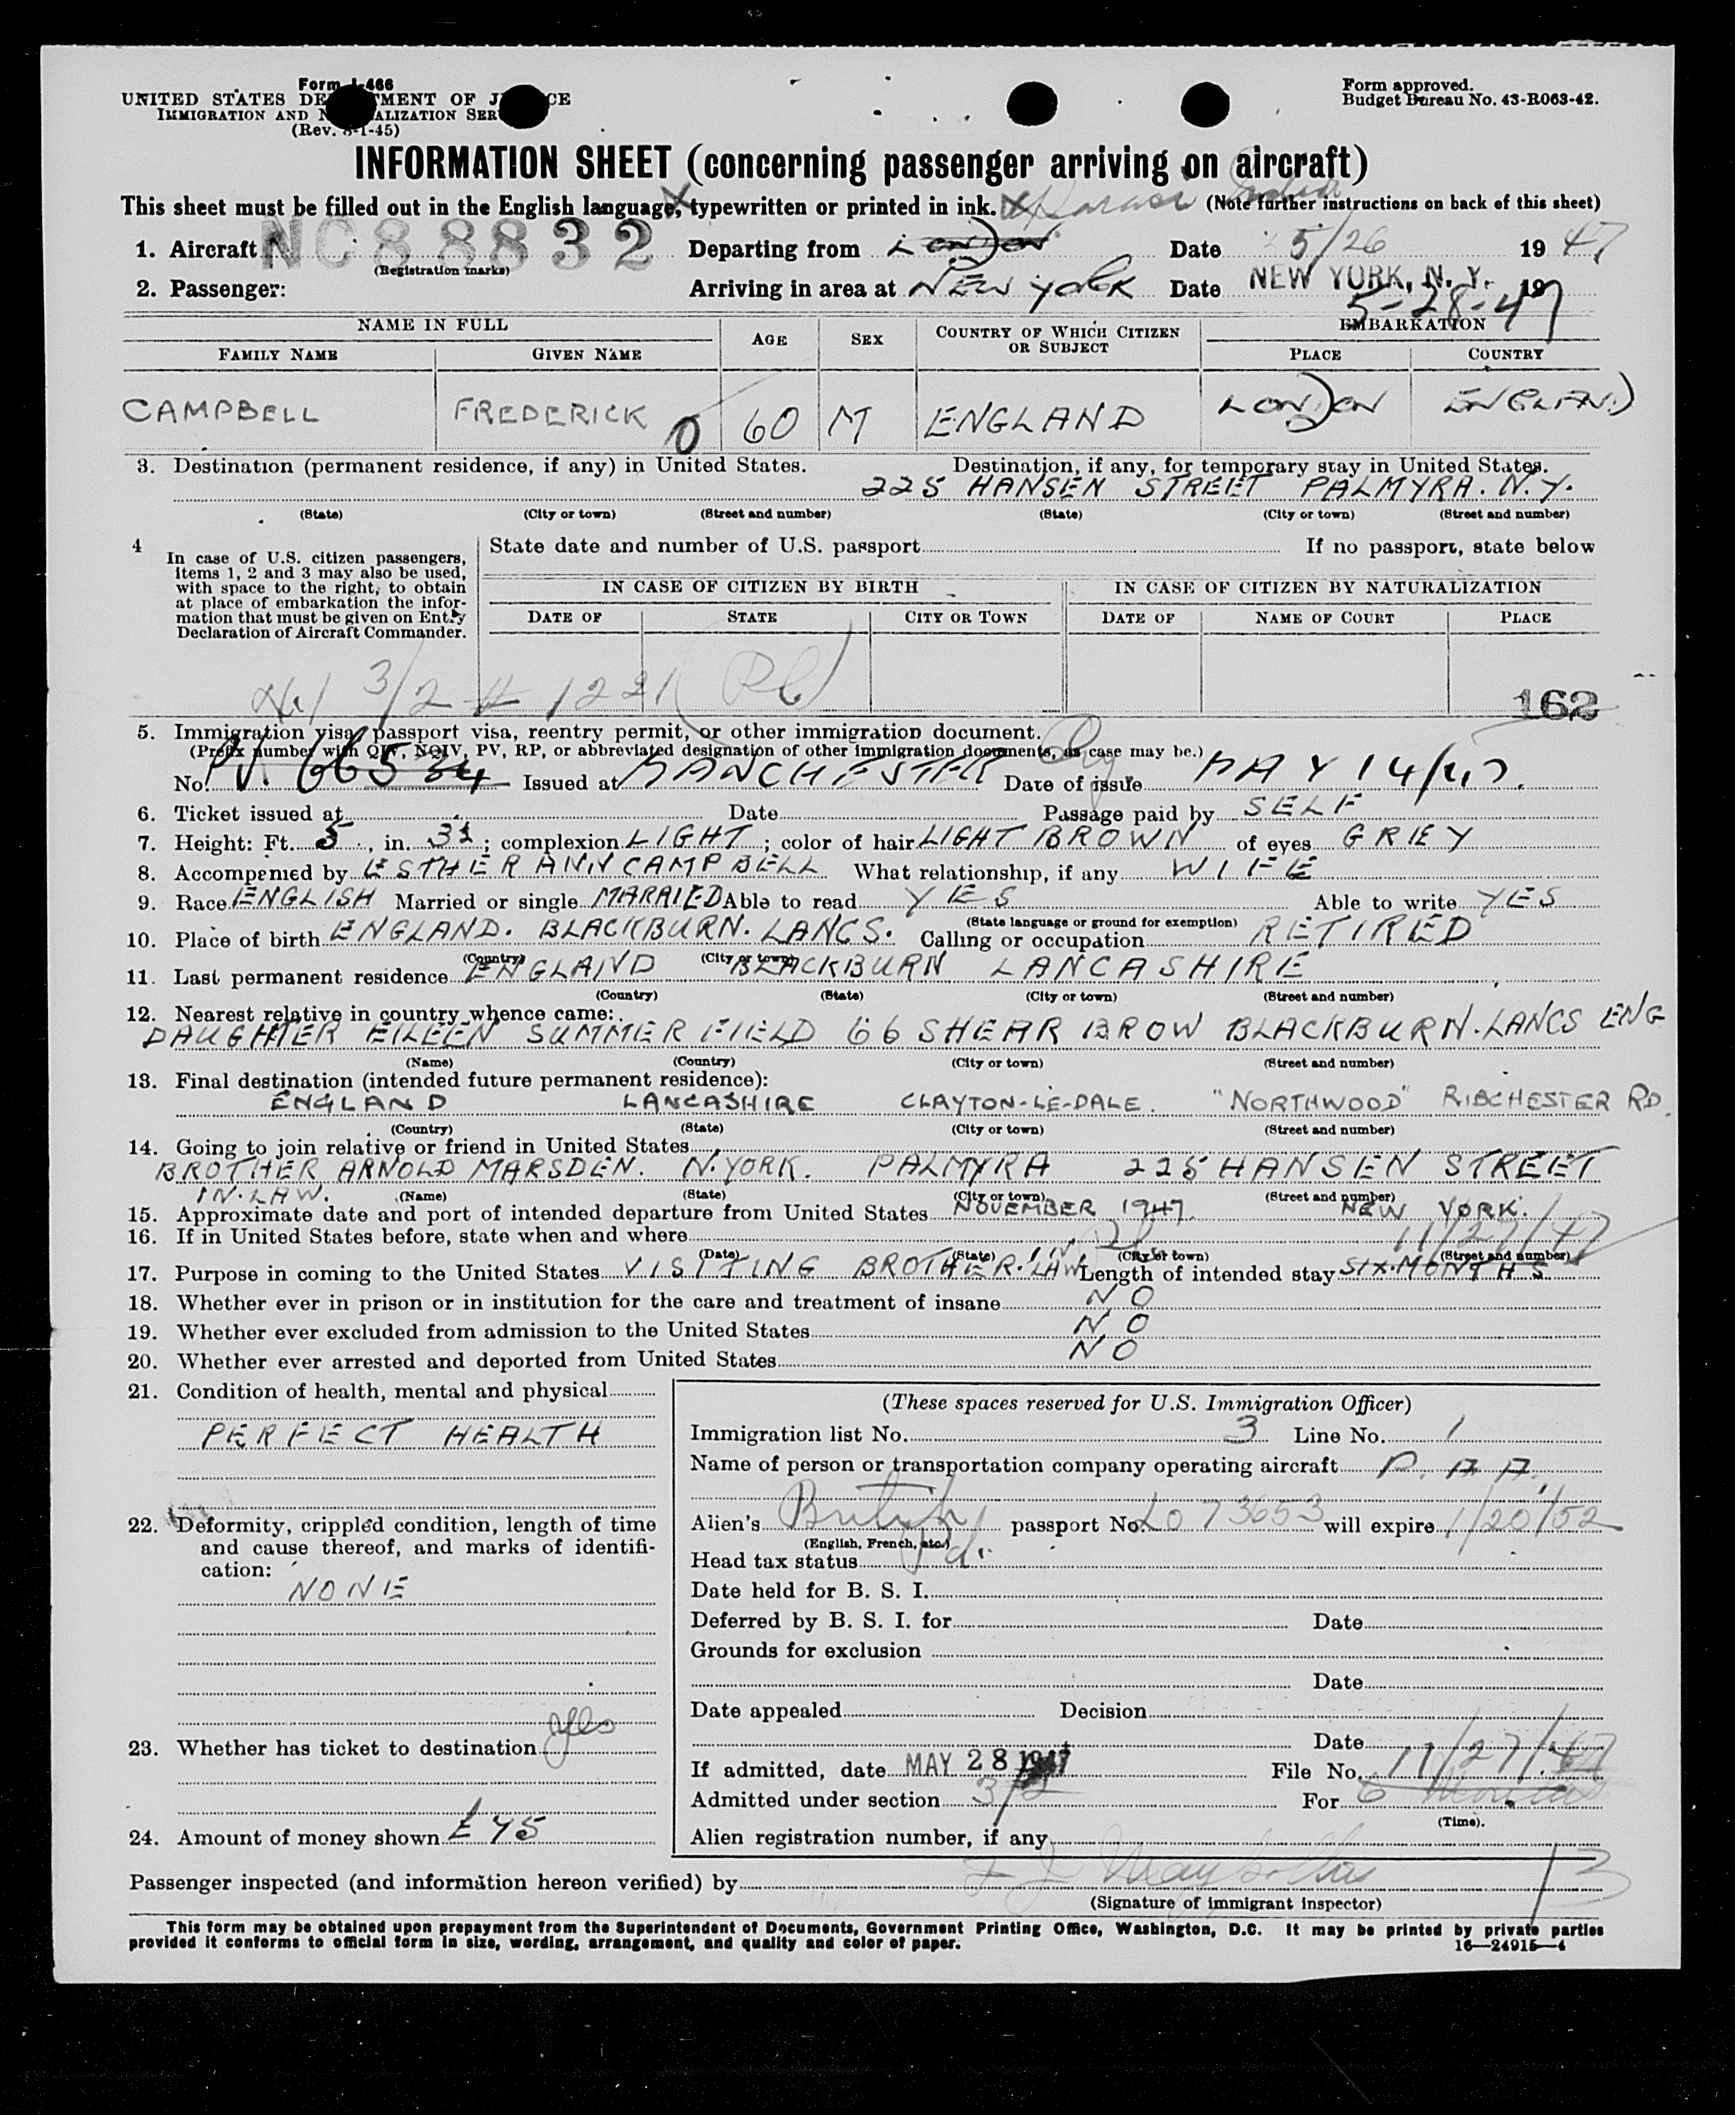 Form I-466
UNITED STATES DEPARTMENT OF JUSTICE
IMMIGRATION AND NATURALIZATION SERVICE
(Rev. 8-1-45)
Form approved.
Budget Bureau No. 43-R063-42.
INFORMATION SHEET (concerning passenger arriving on aircraft)
This sheet must be filled out in the English language, typewritten or printed in ink. (Note further instructions on back of this sheet)
1. Aircraft NC88832 Departing from LONDON Date 5/26 1947
(Registration marks)
2. Passenger: Arriving in area at NEW YORK Date NEW YORK, N. Y. 19
5-28-47
NAME IN FULL AGE SEX COUNTRY OF WHICH CITIZEN OR SUBJECT EMBARKATION
FAMILY NAME GIVEN NAME PLACE COUNTRY
CAMPBELL FREDERICK 60 M ENGLAND LONDON ENGLAND
3. Destination (permanent residence, if any) in United States. Destination, if any, for temporary stay in United States.
225 HANSEN STREET PALMYRA. N.Y.
(State) (City or town) (Street and number) (State) (City or town) (Street and number)
4 In case of U.S. citizen passengers, items 1, 2 and 3 may also be used, with space to the right, to obtain at place of embarkation the information that must be given on Entry Declaration of Aircraft Commander.
State date and number of U.S. passport If no passport, state below
IN CASE OF CITIZEN BY BIRTH IN CASE OF CITIZEN BY NATURALIZATION
DATE OF STATE CITY OR TOWN DATE OF NAME OF COURT PLACE
3/2 # 1221
162
5. Immigration visa, passport visa, reentry permit, or other immigration document.
(Prefix number with QIV, NQIV, PV, RP, or abbreviated designation of other immigration documents, as case may be.)
No. PV. 66534 Issued at MANCHESTER Date of issue MAY 14/47.
6. Ticket issued at Date Passage paid by SELF
7. Height: Ft. 5, in. 3½; complexion LIGHT; color of hair LIGHT BROWN of eyes GREY
8. Accompanied by ESTHER ANN CAMPBELL What relationship, if any WIFE
9. Race ENGLISH Married or single MARRIED Able to read YES Able to write YES
(State language or ground for exemption)
10. Place of birth ENGLAND. BLACKBURN. LANCS. Calling or occupation RETIRED
(Country) (City or town)
11. Last permanent residence ENGLAND BLACKBURN LANCASHIRE
(Country) (State) (City or town) (Street and number)
12. Nearest relative in country whence came:
DAUGHTER EILEEN SUMMERFIELD 66 SHEAR BROW BLACKBURN. LANCS ENG
(Name) (Country) (City or town) (Street and number)
13. Final destination (intended future permanent residence):
ENGLAND LANCASHIRE CLAYTON-LE-DALE. "NORTHWOOD" RIBCHESTER RD.
(Country) (State) (City or town) (Street and number)
14. Going to join relative or friend in United States
BROTHER ARNOLD MARSDEN. N.YORK. PALMYRA 225 HANSEN STREET
IN.LAW. (Name) (State) (City or town) (Street and number)
15. Approximate date and port of intended departure from United States NOVEMBER 1947. NEW YORK.
16. If in United States before, state when and where 11/27/47
(Date) (State) (City or town) (Street and number)
17. Purpose in coming to the United States VISITING BROTHER.IN.LAW Length of intended stay SIX.MONTHS
18. Whether ever in prison or in institution for the care and treatment of insane NO
19. Whether ever excluded from admission to the United States NO
20. Whether ever arrested and deported from United States NO
21. Condition of health, mental and physical
PERFECT HEALTH
22. Deformity, crippled condition, length of time and cause thereof, and marks of identification:
NONE
23. Whether has ticket to destination yes
24. Amount of money shown £45
(These spaces reserved for U.S. Immigration Officer)
Immigration list No. 3 Line No. 1
Name of person or transportation company operating aircraft P.A.A.
Alien's British passport No. LO 73653 will expire 1/20/52
(English, French, etc.)
Head tax status
Date held for B. S. I.
Deferred by B. S. I. for Date
Grounds for exclusion
Date
Date appealed Decision
Date
If admitted, date MAY 28 1947 File No. 11/27/47
Admitted under section 3/2 For 6 Months
(Time).
Alien registration number, if any
Passenger inspected (and information hereon verified) by
(Signature of immigrant inspector)
This form may be obtained upon prepayment from the Superintendent of Documents, Government Printing Office, Washington, D.C. It may be printed by private parties
provided it conforms to official form in size, wording, arrangement, and quality and color of paper. 16—24915—4